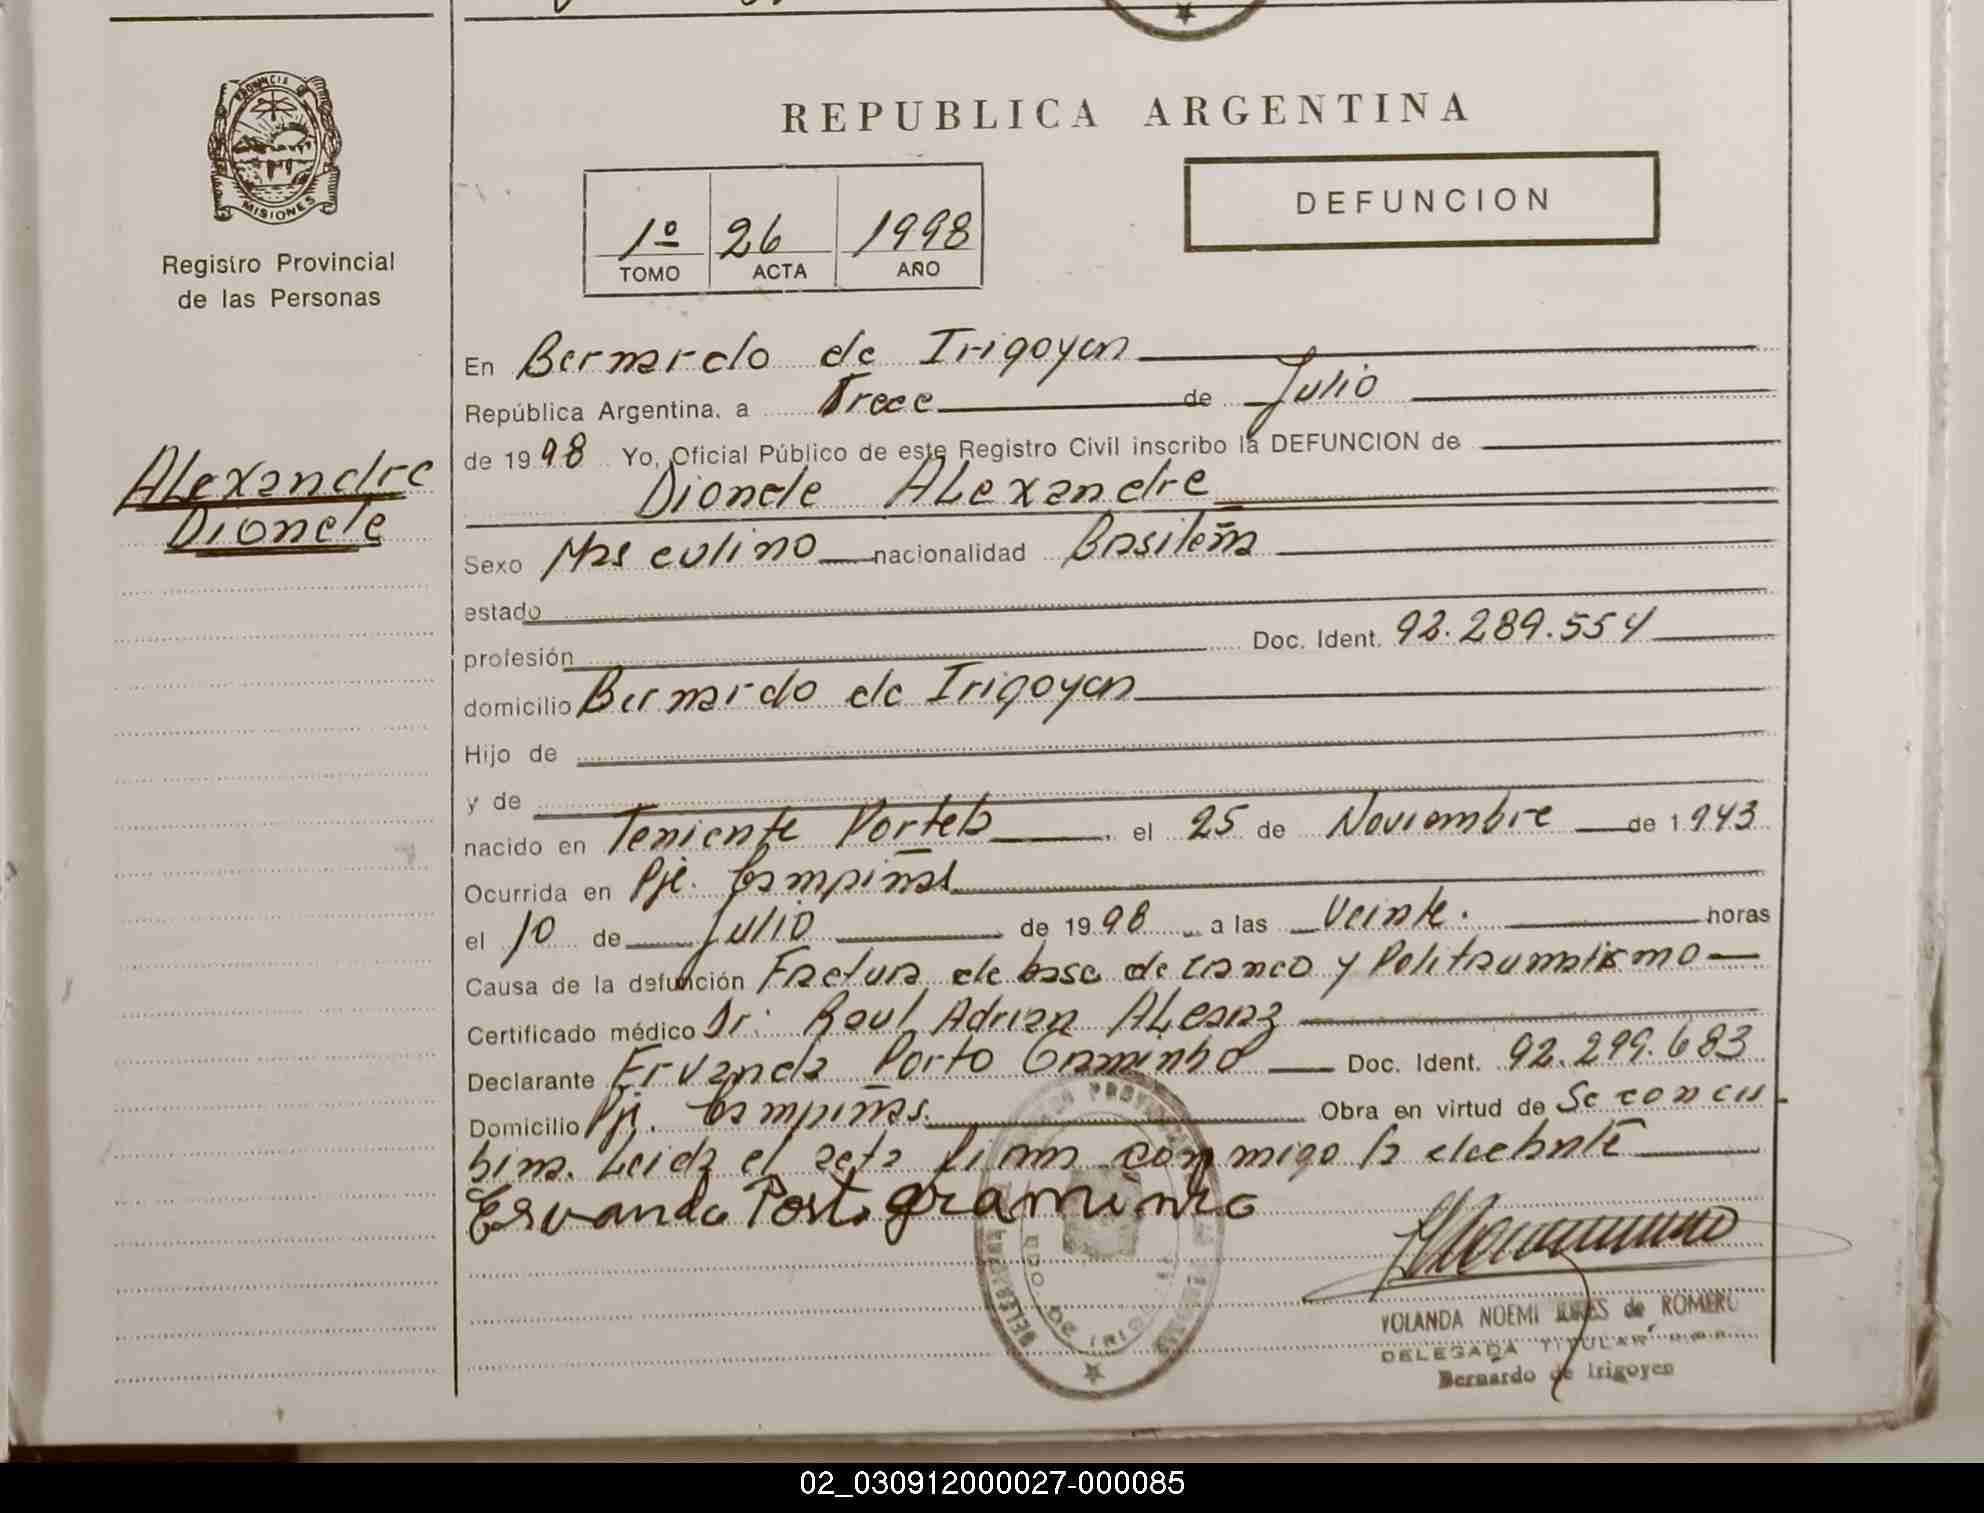 PROVINCIA DE
MISIONES
Registro Provincial
de las Personas
Alexandre
Dionele
REPUBLICA ARGENTINA
1º 26 1998
TOMO ACTA AÑO
DEFUNCION
En Bernardo de Irigoyen
República Argentina, a Trece de Julio
de 1998 Yo, Oficial Público de este Registro Civil inscribo la DEFUNCION de
Dionele Alexandre
Sexo Masculino nacionalidad Basileña
estado
profesión Doc. Ident. 92.289.554
domicilio Bernardo de Irigoyen
Hijo de
y de
nacido en Teniente Portela el 25 de Noviembre de 1943
Ocurrida en Pje. Campiñas
el 10 de Julio de 1998 a las Veinte. horas
Causa de la defunción Fractura de base de craneo y Politraumatismo
Certificado médico Dr: Raul Adrian
Declarante Ervanda Porto Graminho Doc. Ident. 92.299.683
Domicilio Pj. Campiñas. Obra en virtud de Se concu
bina. Leida el acta firma conmigo la declante
Ervanda Porto graminho
YOLANDA NOEMI de ROMERO
DELEGADA TITULAR
Bernardo de Irigoyen
02_030912000027-000085